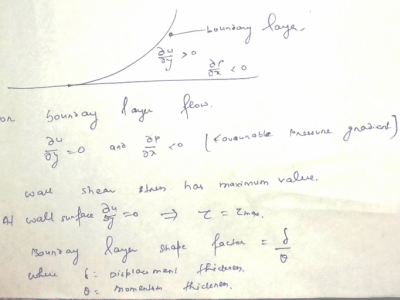 boundary layer.
∂u/∂y > 0
∂P/∂x < 0
on boundary layer flow.
∂u/∂y = 0 and ∂P/∂x < 0 (favourable pressure gradient)
wall shear stress has maximum value.
At wall surface ∂u/∂y = 0 ⇒ τ = τmax.
Boundary layer shape factor = δ/θ
where δ = displacement thickness.
θ = momentum thickness.